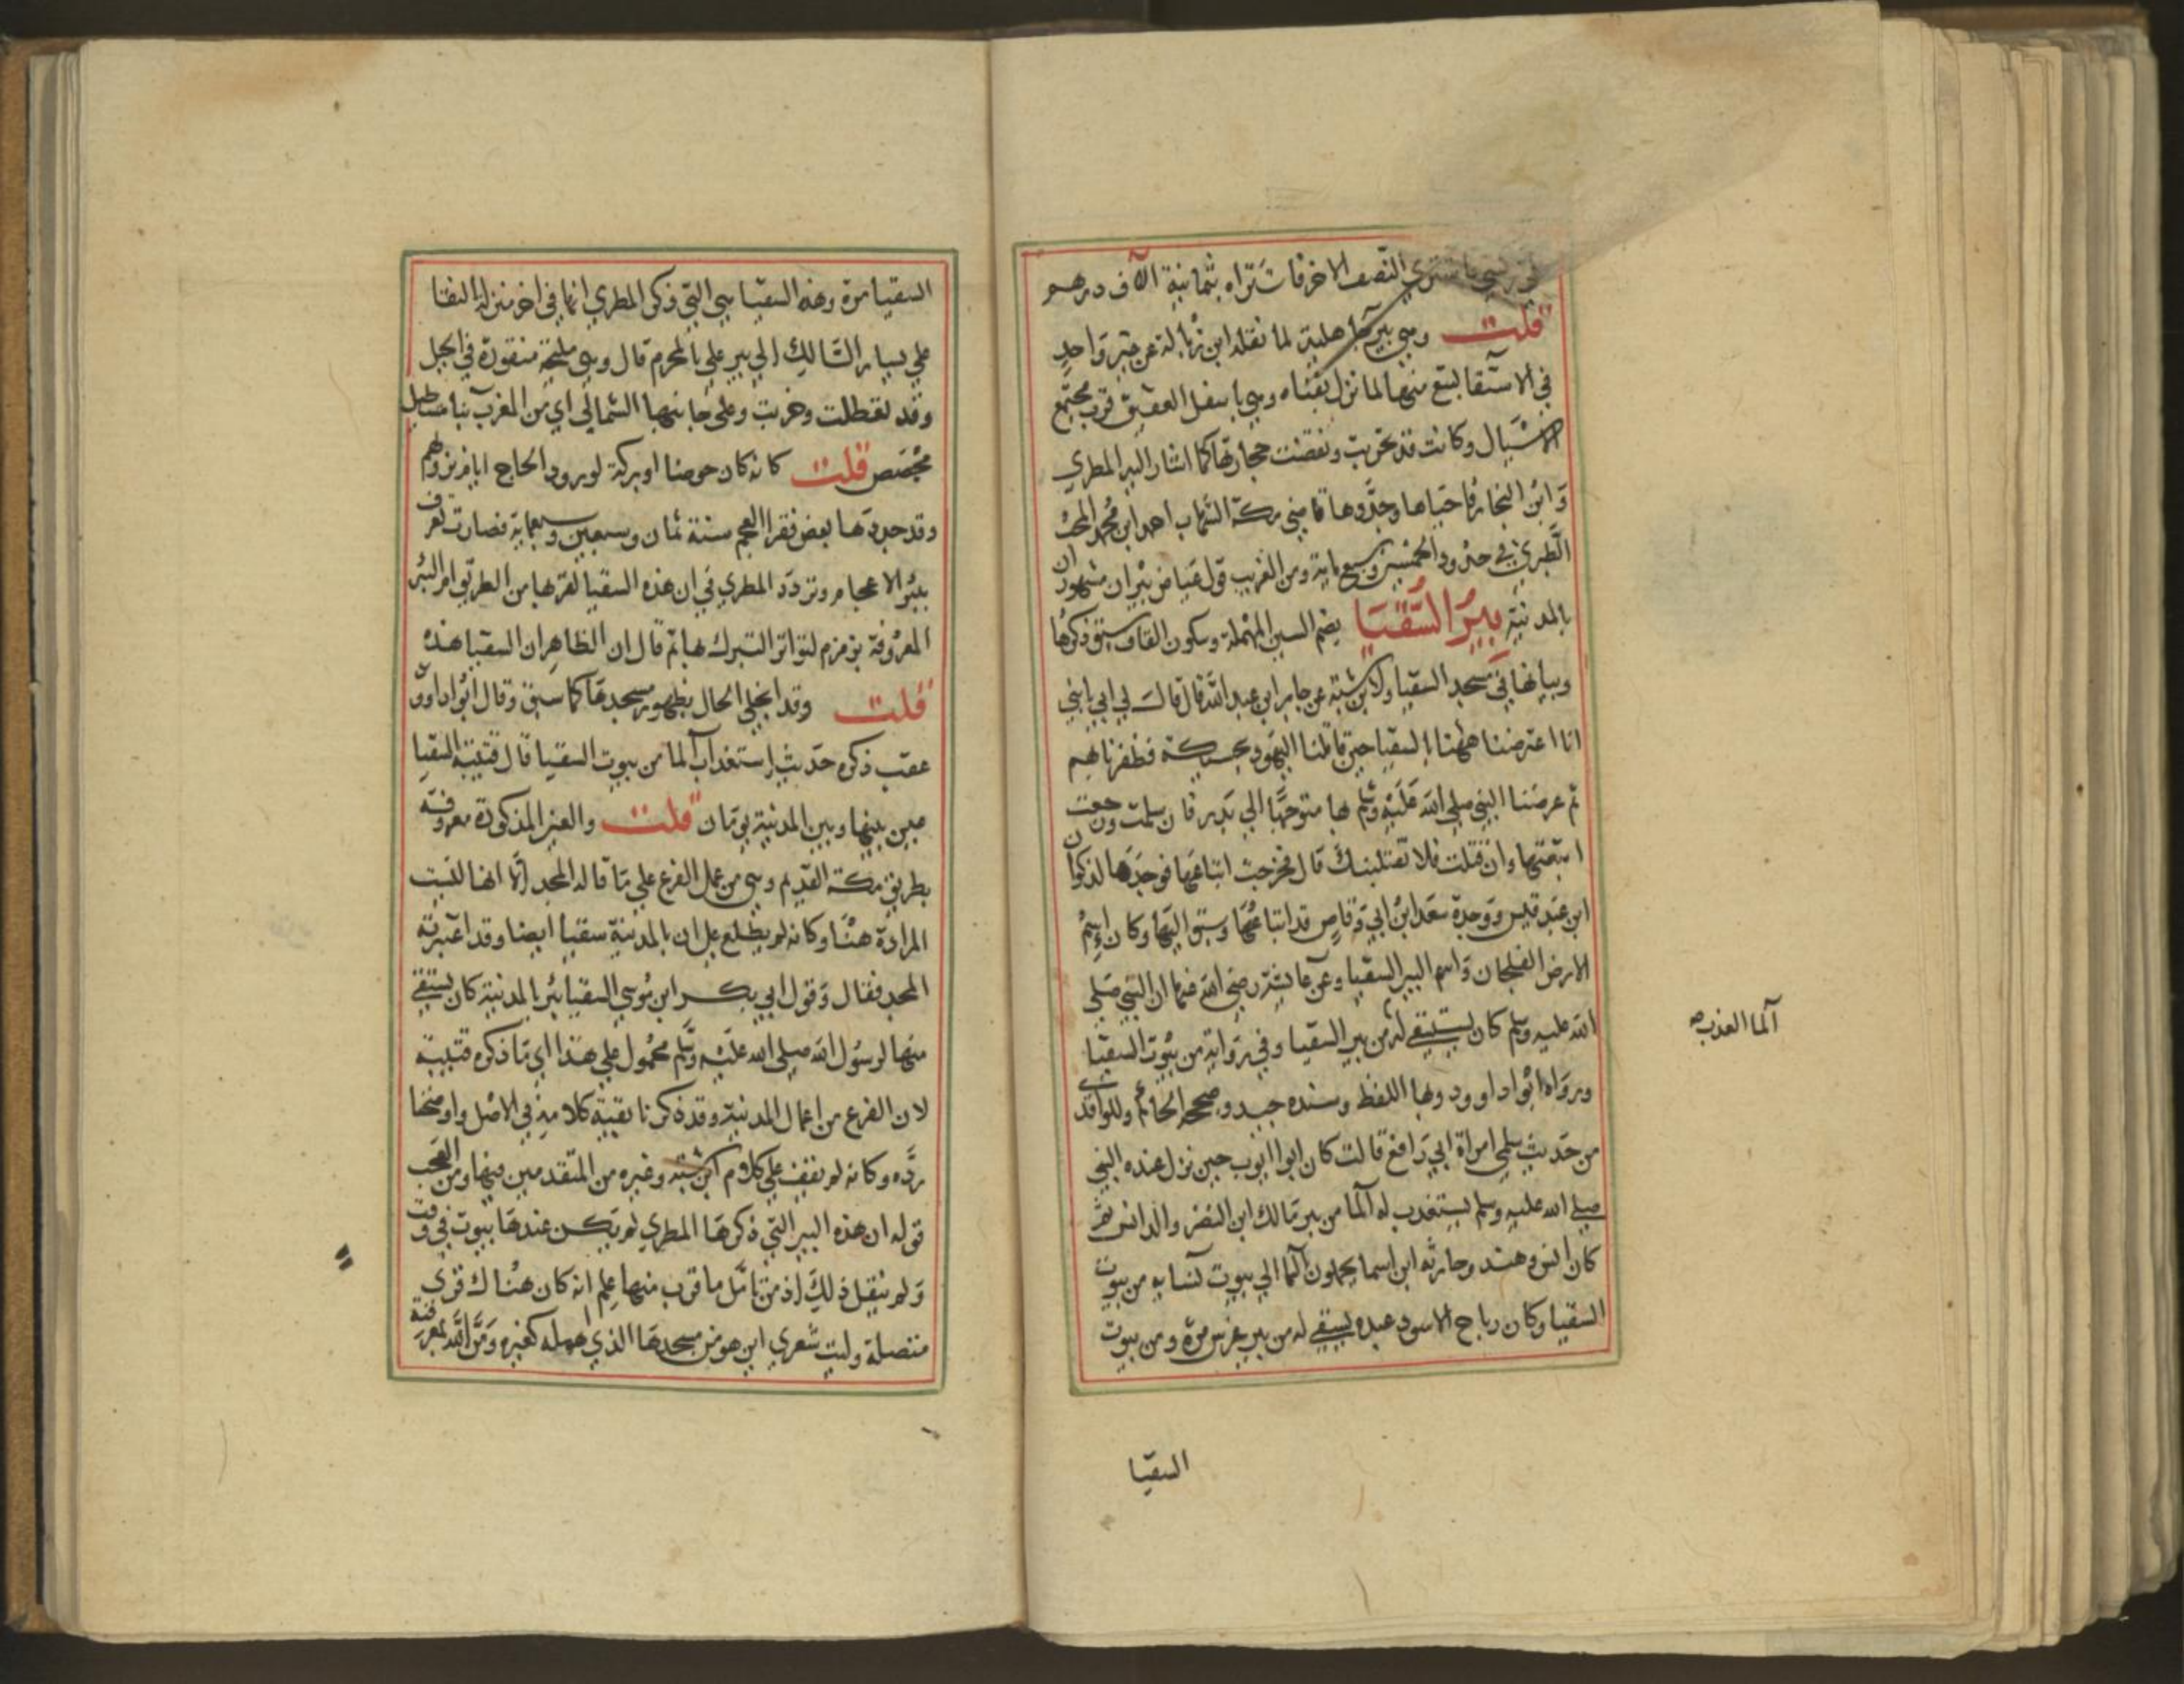 النصف الاخر فاشتراه بثمانية الاف درهم
قلت وهي بير جاهلية لما نقله ابن زبالة عن خبر واحد
في الاستقا لتبع منها لما نزل بقناه وهي باسفل العقيق قرب مجتمع
الاسيال وكانت قد خربت ونقضت حجارتها كما اشار اليه المطري
وابن النجار فاحياها وجددها قاضي مكة الشهاب احمد ابن محمد المحب
الطبري في حدود الخمسين وسبع ماية ومن الغريب قول عياض بيران مشهوران
بالمدنية بير السقيا بضم السين المهملة وسكون القاف سبق ذكرها
وبيانها في مسجد السقيا ولابن شبة عن جابر ابن عبد الله قال قال لي ابي يا بني
انا اعترضنا ههنا بالسقيا حين قاتلنا اليهود بحسيكة فظفرنا بهم
ثم عرضنا النبي صلي الله عليه وسلم بها متوجها الي بدر فان سلمت ورجعت
ابتعتها وان قتلت فلا تفتلتنك قال فخرجت ابتاعها فوجدتها لذكوان
ابن عبد قيس ووجدة سعد ابن ابي وقاص قد ابتاعها وسبق اليها وكان اسم
الارض الفلجان واسم البير السقيا وعن عايشة رضي الله عنها ان النبي صلي
الله عليه وسلم كان يستقي له من بير السقيا وفي رواية من بيوت السقيا
ورواه ابو داوود وبها اللفظ وسنده جيد وصححه الحاكم وللواقدي
من حديث سلمي امراة ابي رافع قالت كان ابو ايوب حين نزل عنده النبي
صلي الله عليه وسلم يستعذب له الما من بير مالك ابن النضر والد انس ثم
كان انس وهند وحارثه ابن اسما يحملون الما الي بيوت نسايه من بيوت
السقيا وكان رباح الاسود عبده يستقي له من بير غرس مرة ومن بيوت
الما العذب صه
السقيا
السقيا مرة وهذه السقيا هي التي ذكر المطري انها في اخر منزلة النقا
علي يسار السالك الي بير علي بالمحرم قال وهي مليحة منقورة في الجبل
وقد تعطلت وخربت وعلي جانبها الشمالي اي من المغرب بنا مستطيل
مجصص قلت كانه كان حوضا او بركة لورود الحاج ايام نزولهم
وقد جددتها بعض فقرا العجم سنة ثمان وسبعين وسبعماية فصارت تعرف
ببير الاعجام وتردد المطري في ان هذه السقيا لقربها من الطريق ام البير
المعروفة بزمزم لتواتر التبرك بها ثم قال ان الظاهر ان السقيا هذه
قلت وقد انجلي الحال بظهور مسجدها كما سبق وقال ابو داوود
عقب ذكره حديث استعذاب الما من بيوت السقيا قال قتيبة السقيا
عين بينها وبين المدنية يومان قلت والعين المذكورة معروفة
بطريق مكة القديم وهي من عمل الفرع علي ما قاله المجد الا انها ليست
المرادة هنا وكانه لم يطلع علي ان بالمدنية سقيا ايضا وقد اغتر به
المجد فقال وقول ابي بكر ابن موسي السقيا بير بالمدنية كان يستقي
منها لرسول الله صلي الله عليه وسلم محمول علي هذا اي ما ذكره قتيبة
لان الفرع من اعمال المدنية وقد ذكرنا بقية كلامه في الاصل واوضحنا
رده وكانه لم يقف علي كلام ابن شبه وغيره من المتقدمين فيها ومن العجب
قوله ان هذه البير التي ذكرها المطري لم تكن عندها بيوت في وقت
ولم ينقل ذلك اذ من تامل ما قرب منها علم انه كان هناك قري
متصلة وليت شعري اين هو من مسجدها الذي اهمله كغيره ومن الله بمعرفته